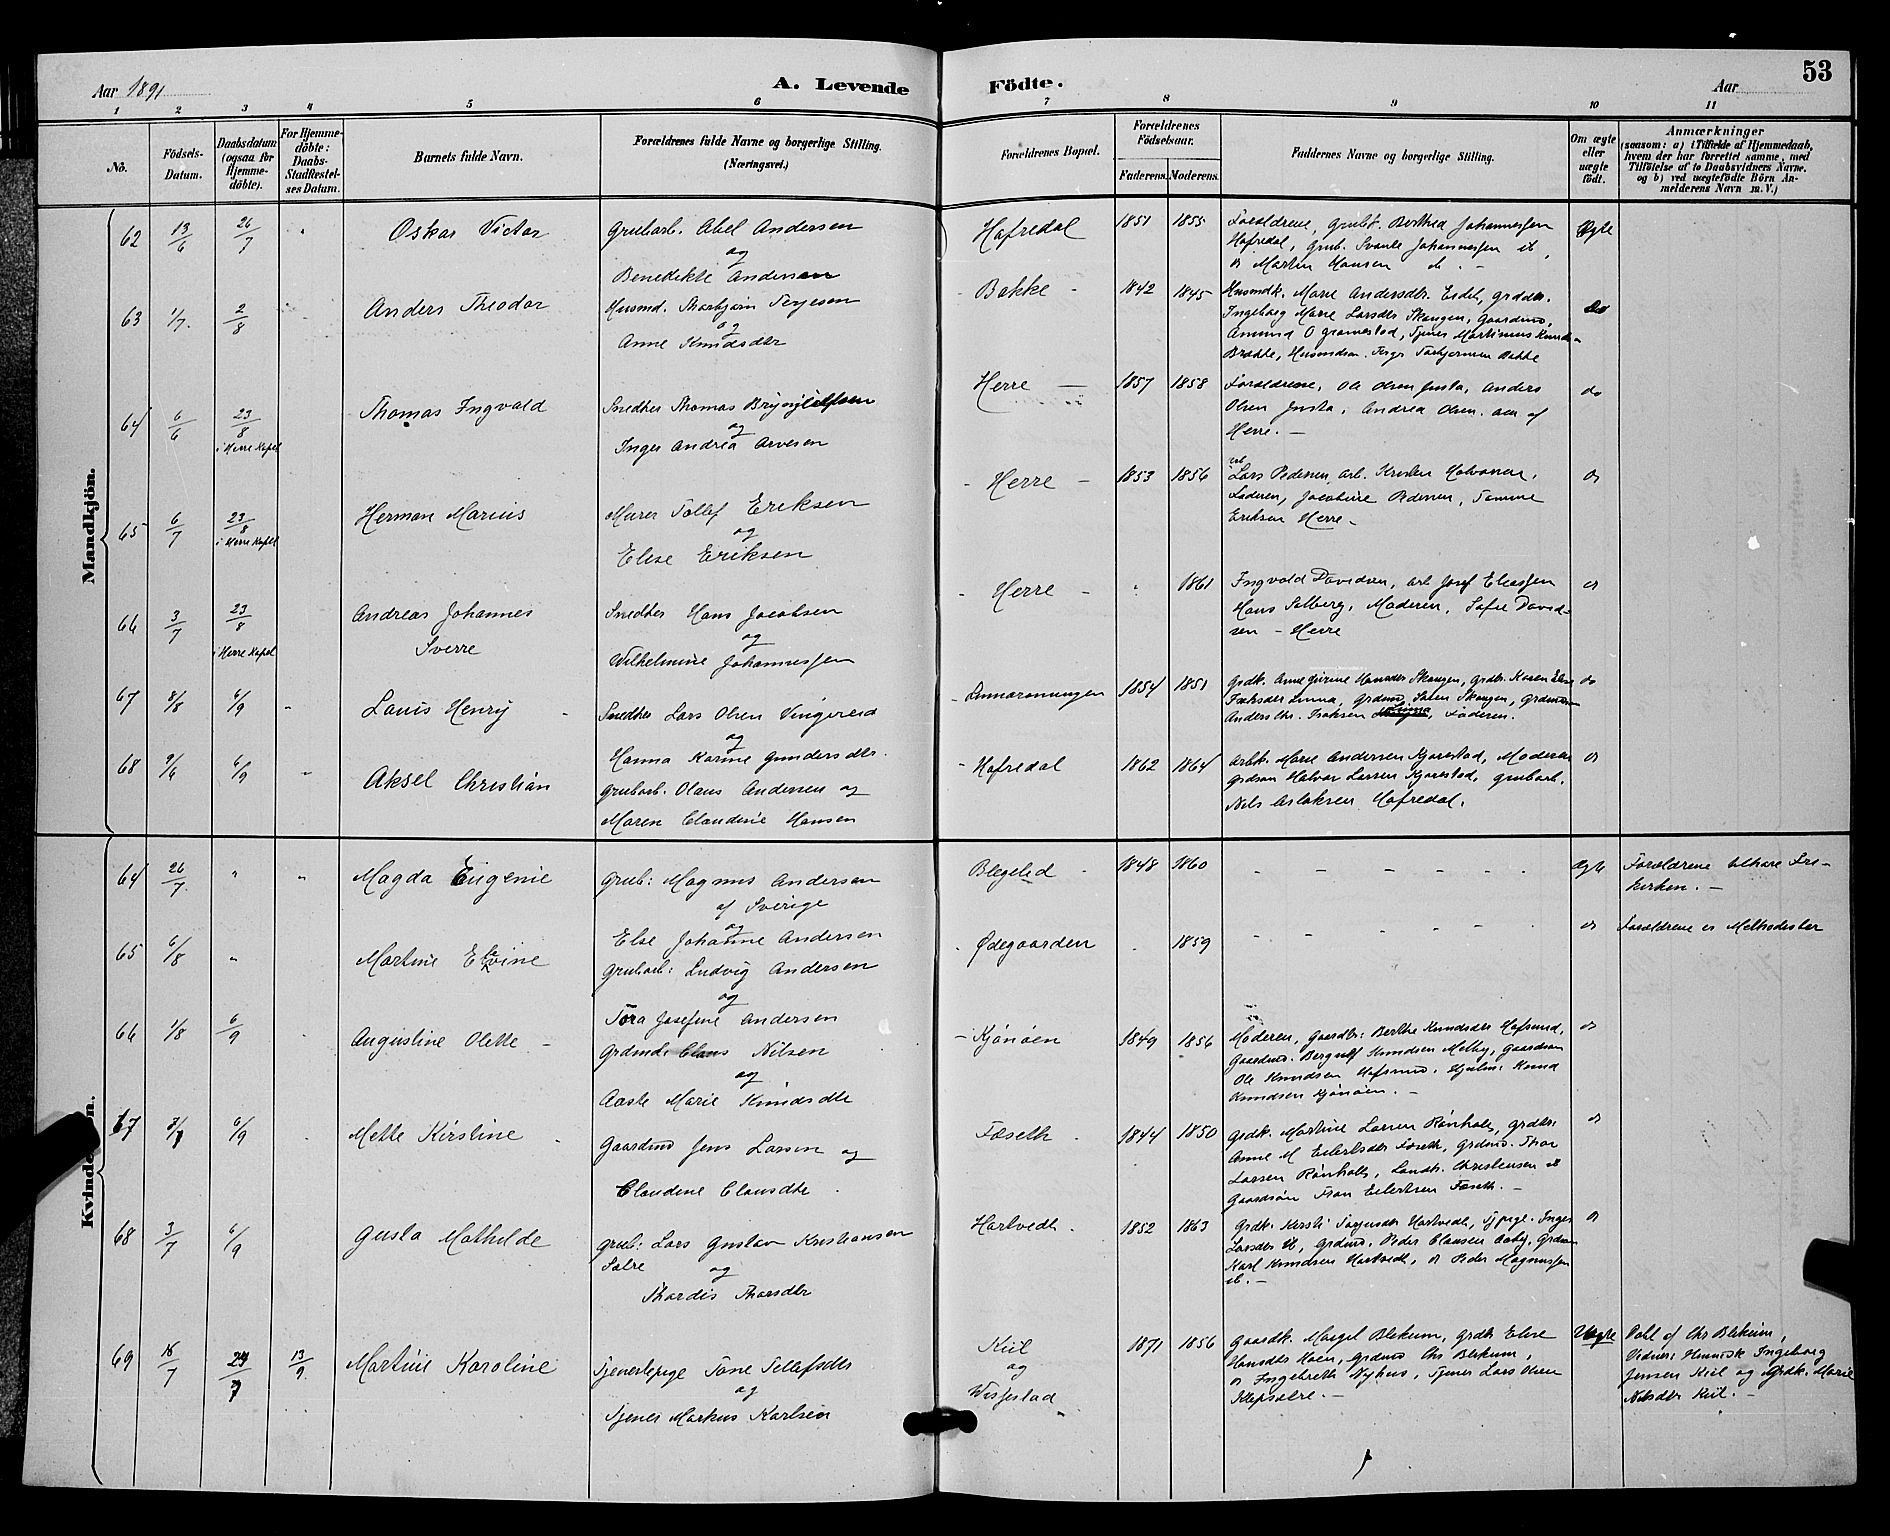 Aar 1891
A. Levende
Födte.
Aar
53
1 2 3 4 5 6 7 8 9 10 11
No.
Födsels-
Datum.
Daabsdatum
(ogsaa for
Hjemme-
döbte).
For Hjemme-
döbte:
Daabs-
Stadfæstel-
ses Datum.
Barnets fulde Navn.
Forældrenes fulde Navne og borgerlige Stilling.
(Næringsvei.)
Forældrenes Bopæl.
Forældrenes
Födselsaar.
Faderens. Moderens.
Faddernes Navne og borgerlige Stilling.
Om ægte
eller
uægte
födt.
Anmærkninger
(saasom: a) i Tilfælde af Hjemmedaab,
hvem der har forrettet samme, med
Tilföielse af to Daabsvidners Navne.
og b) ved uægtefödte Börn An-
melderens Navn m. V.)
Mandkjön.
62 13/6 26/7 Oskar Victor
Grubarb. Abel Andersen
og
Benedikte Andersen
Hafredal 1851 1855
Forældrene, Grubk. Berthea Johannessen
Hafredal, Grub. Svante Johannessen ib,
Martin Hansen do. -
Ægte
63 1/7. 2/8 Anders Theodor
Husmd. Thorbjørn Terjesen
og
Anne Knudsdtr
Bakke 1842 1845
Husmdk. Marie Andersdtr. Eidet, grddtr.
Ingeborg Marie Larsdtr Skougen, Gaardmd,
Amund O Gromstad, Tjener Martinus Knuds-
Brække, Husmdsøn. Terje Torbjørnsen Bakke
do
64 6/6 23/8 i Herre Kapel Thomas Ingvald
Snedker Thomas Brynjulfsen
og
Inger Andrea Arvesen
Herre 1857 1858
Forældrene, Ole Olsen Gusta, Anders
Olsen Gusta, Andrea Olsen. alle af
Herre. -
do
65 6/7 23/8 i Herre Kapel Herman Marius
Murer Tollef Eriksen
og
Elise Eriksen
Herre 1853 1856
Lars Pedersen, arb. Kristen Halvorsen,
Faderen, Jacobine Pedersen, Tomine
Eriksen Herre -
do
66 3/7 23/8 i Herre Kapel Andreas Johannes
Sverre
Snedker Hans Jacobsen
og
Wilhelmine Johannessen
Herre 1861
Ingvald Davidsen, arb Josef Eliassen
Hans Solberg, Moderen, Sofie David-
sen - Herre
do
67 8/8 6/9 Louis Henry
Snedker Lars Olsen Vingereid
og
Hanna Karine Gundersdtr.
1854 1851
Grdk. Anne Gurine Hansdtr Skougen, grdtr. Karen Elise
Isaksdtr Linna, Grdmd. Søren Skougen, Grdmdsøn
Anders Chr. Isaksen Linna, Faderen.
do
68 9/6 6/9 Aksel Christian
Grubarb. Olaus Andersen og
Maren Claudine Hansen
Hafredal 1862 1864
Arbk. Marie Andersen Kjørestad, Moderen
Grdsøn Halvor Larsen Kjørestad, Grubarb.
Nils Aslaksen Hafredal.
do
Kvindekjön.
64 26/7. Magda Eugenie
Grub: Magnus Andersen
af Sverige
og
Else Johanne Andersen
1848 1860
Ægte
Forældrene tilhøre Fri-
kirken. -
65 6/8 Martine Elvine
Grubarb: Ludvig Andersen
og
Tora Josefine Andersen
Ødegaarden 1859
do
Forældrene er Methodister
66 1/8 6/9 Augustine Olette
Grdmd. Claus Nilsen
og
Aaste Marie Knudsdtr
Kjønøen 1849 1856
Moderen, Gaardtr: Berthe Knudsdtr Hafsund,
Gaardmd. Bergulf Knudsen Melby, Gaardsøn
Ole Knudsen Hafsund, Knud
Knudsen Kjønøen. -
do
67 7/7 6/9 Mette Kirstine
Gaardmd Jens Larsen og
Claudine Clausdtr
Foseth 1844 1850
Grdk. Martine Larsen Rønholt, grdtr:
Anne M Eilertsdtr Foseth, Grdmd. Thor
Larsen Rønholt, Landh. Christensen ib
Gaardsøn Eilertsen Foseth. -
do
68 3/7 6/9 Gusta Mathilde
Grub: Lars Gustav Kristiansen
og
Thordis Thorsdtr
Hartvedt. 1852 1863
Grdk. Kersti Torjusdtr Hartvedt, Tjpige. Inger
Larsdtr ib, Grdmd. Peder Clausen Aaby, Grdsøn
Karl Knudsen Hartvedt, Peder Magnussen
ib. -
do
69 16/7 13/9 Martine Karoline
Tjenestepige Tone Tellefsdtr
og
Tjener Markus Karlsen
Kiil
og
Wissestad
1871 1856
Gaardk. Margit Blekum, Grdtr Elise
Hansdtr Moen, Grdmd Chr Blekum,
Ingebreth Nyhus, Tjener Lars Olsen
Klepsætre. -
Uægte
Døbt af Chr Blekum,
Vidner: Husmdk Ingeborg
Jensen Kiil og Grdk. Marie
Nilsdtr Kiil. -